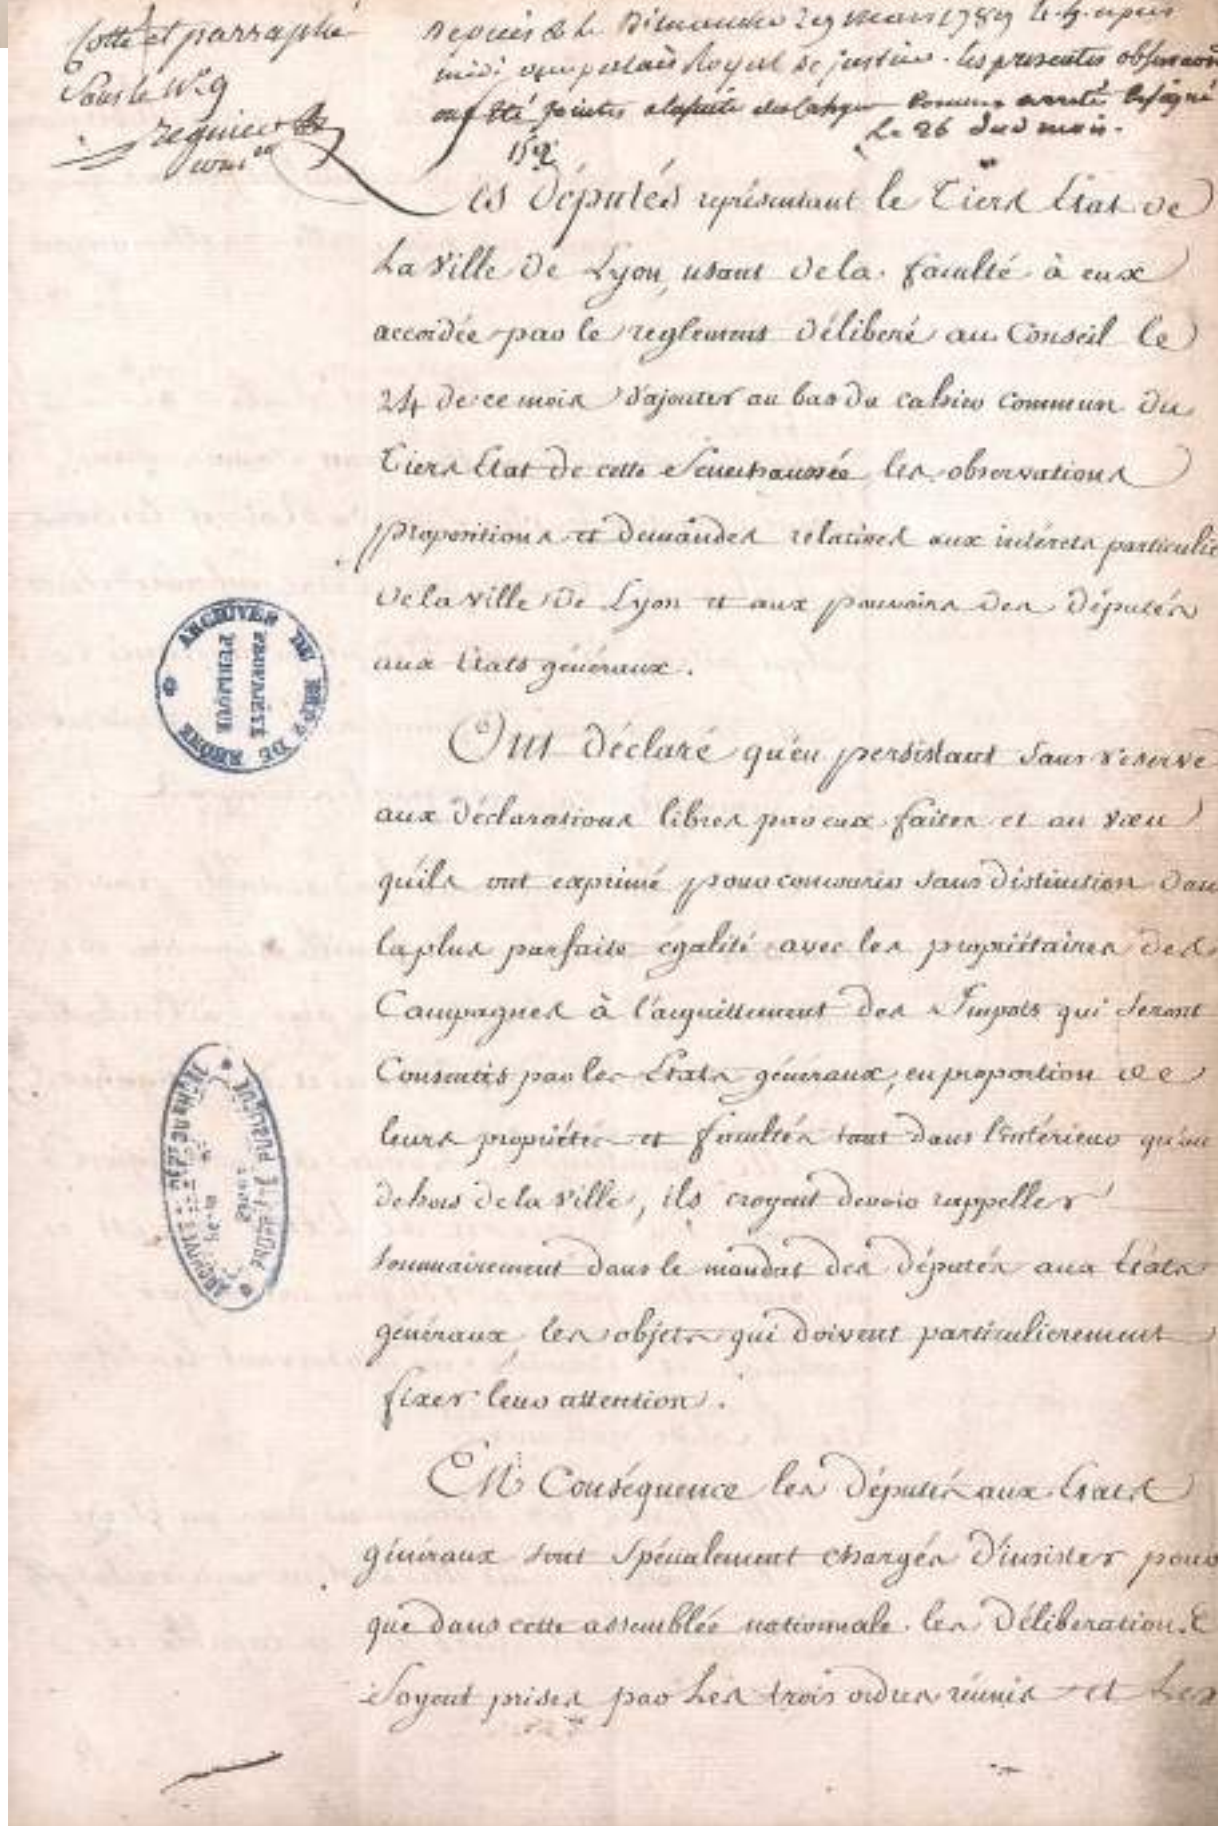 Cotté et parraphé
Sous le N.º 9
regnier
Depuis & le Dimanche 29 mars 1789 de après
midi au palais Royal de justice. les presentes observations
ont été jointes à la suite du Cahyer Commun arrêté & signé
le 26 dud mois.
Les Députés représentant le Tiers État de
La Ville de Lyon, usant de la faculté à eux
accordée par le reglement Déliberé au Conseil le
24 de ce mois d'ajouter au bas du cahier Commun du
Tiers État de cette Senechaussée, les observations
propositions et demandes relatives aux intérets particulie
de la Ville de Lyon et aux pouvoirs des députés
aux États généraux.
Ont déclaré qu'en persistant sans réserve
aux déclarations libres par eux faites et au vœu
qu'ils ont exprimé pour concourir sans distinction dans
la plus parfaite égalité avec les propriétaires des
Campagnes à l'acquittement des Impots qui seront
Consentis par les États généraux, en proportion de
leurs propriétés et facultés tant dans l'intérieur qu'au
dehors de la Ville, ils croyent devoir rappeller
sommairement dans le mandat des députés aux États
généraux, les objets qui doivent particulierement
fixer leur attention.
En Conséquence les députés aux États
généraux sont spécialement chargés d'insister pour
que dans cette assemblée nationnale les Déliberations
Soyent prises par Les trois ordres réunis et Les
ARCHIVES DU DÉPT DU RHONE
PROPRIÉTÉ
PUBLIQUE